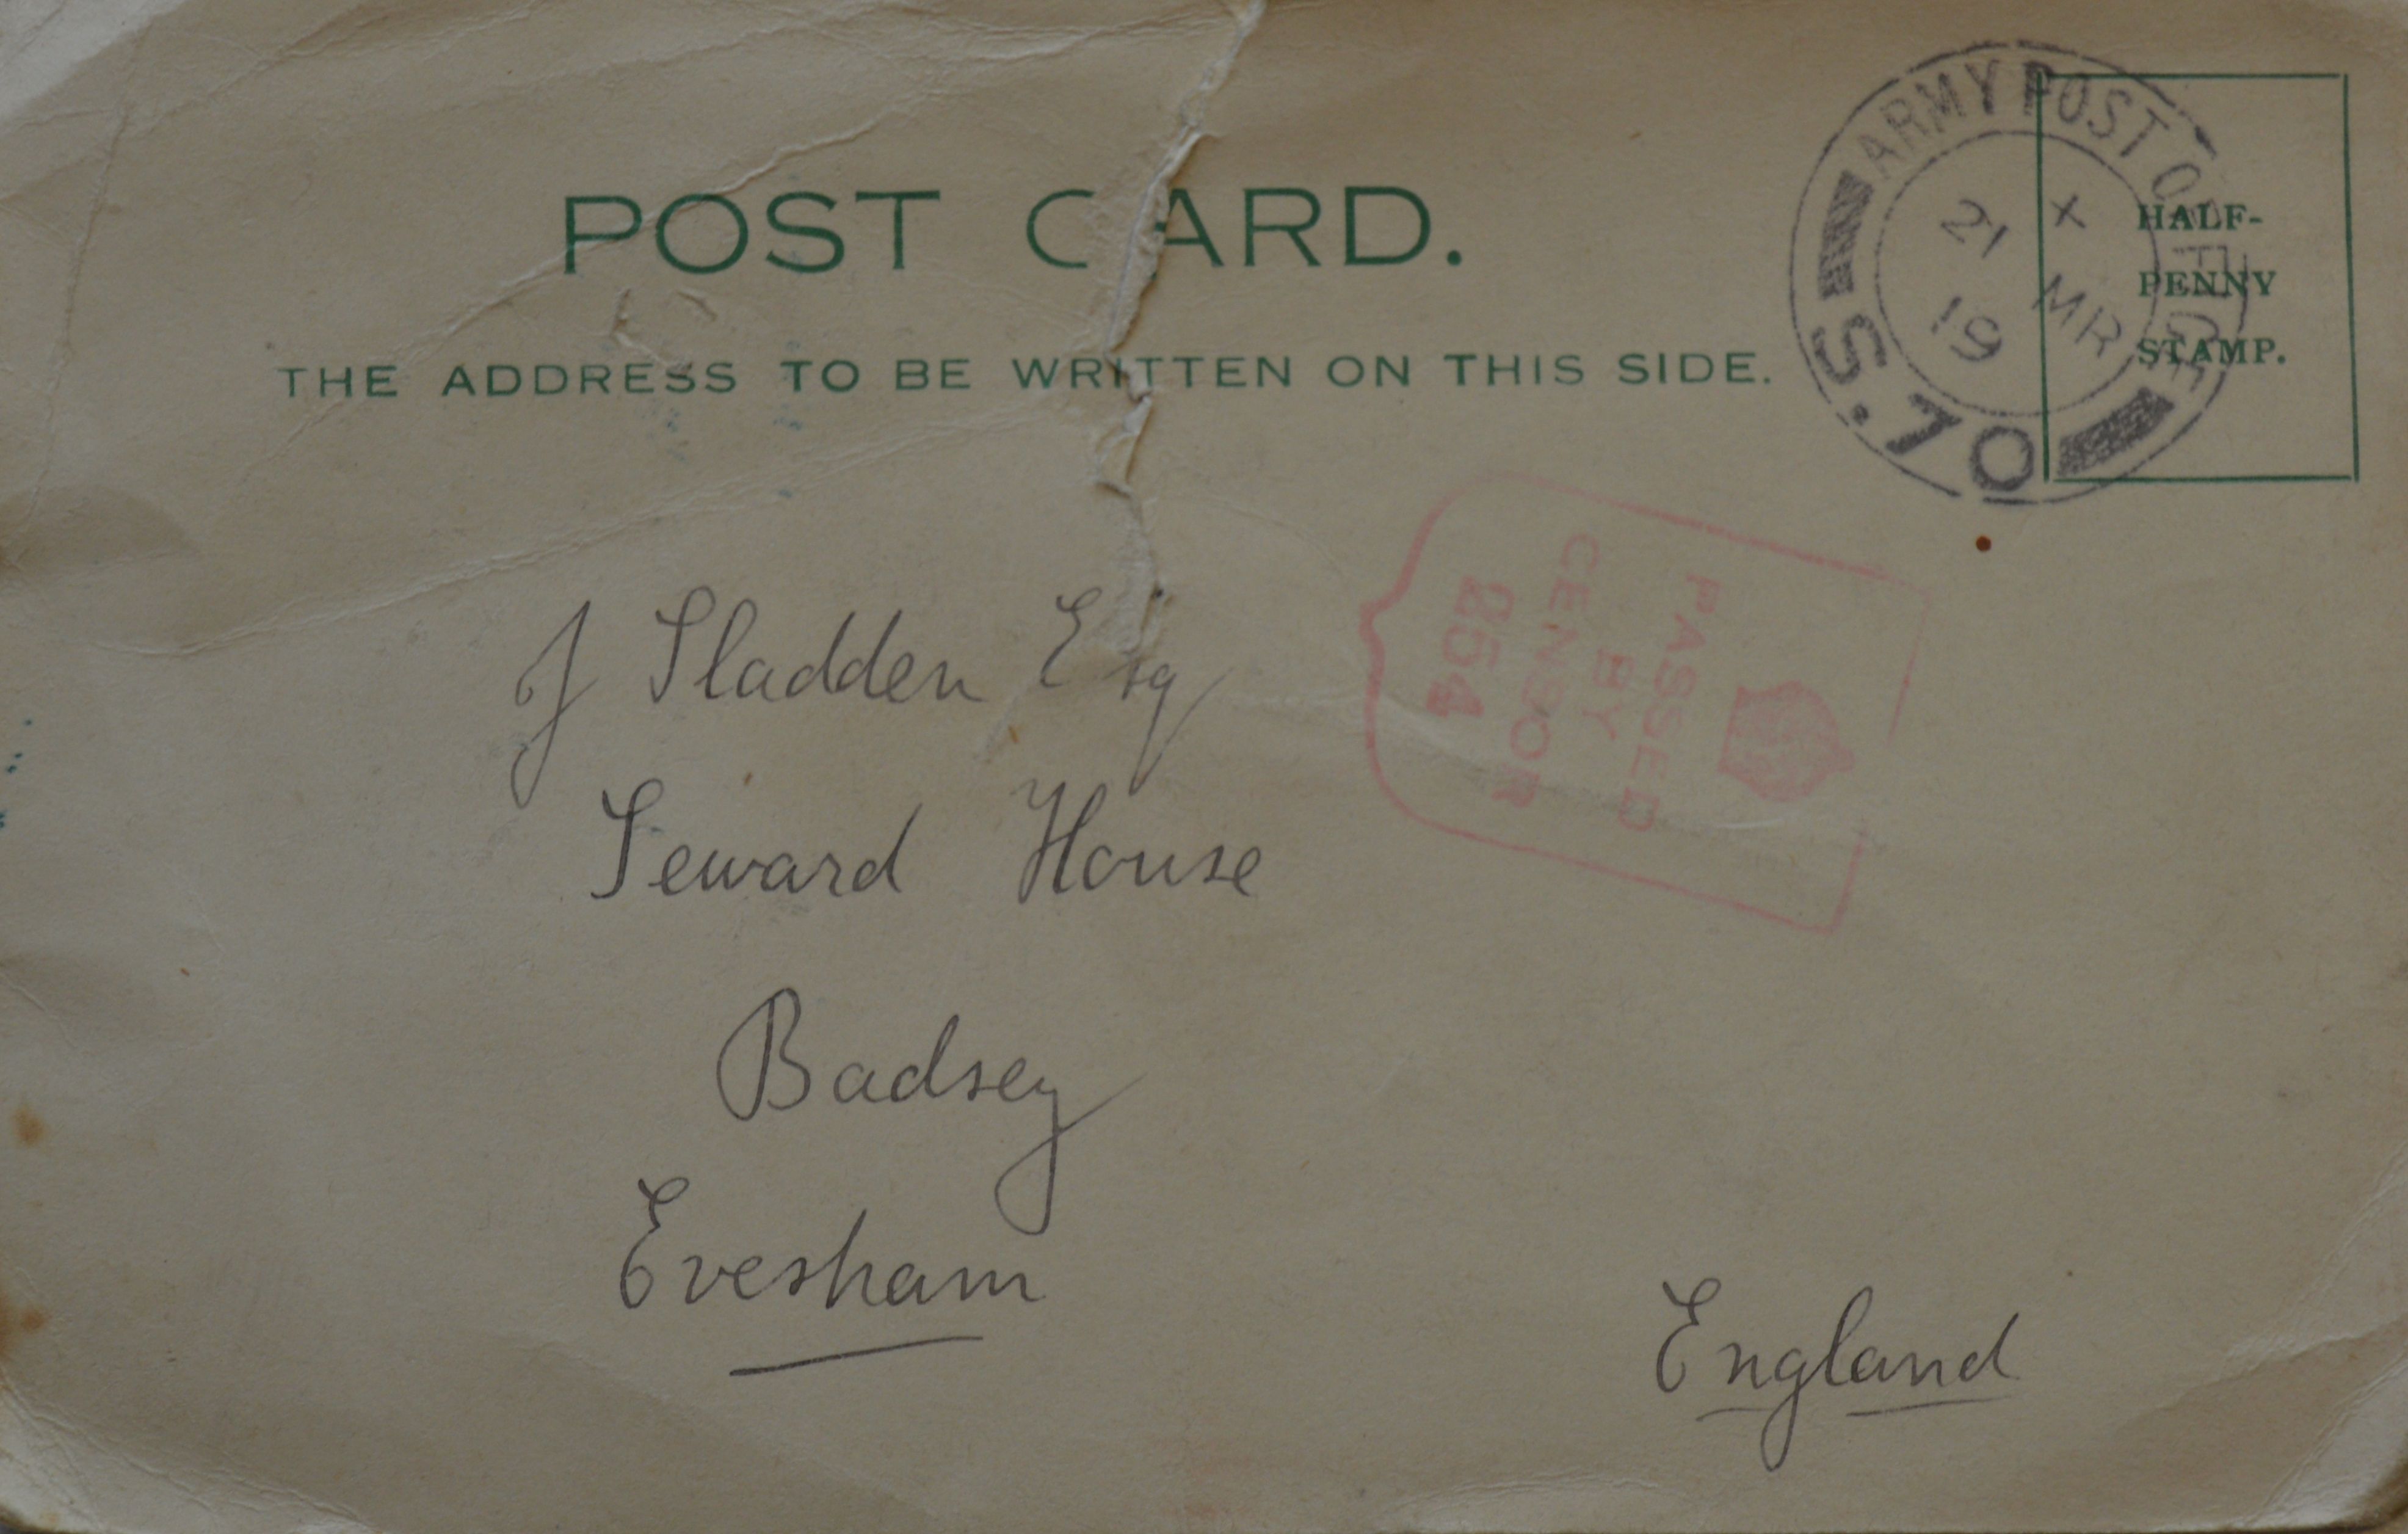 POST CARD.
THE ADDRESS TO BE WRITTEN ON THIS SIDE.
ARMY POST OFFICE
X
21 MR
19
S.70
HALF-
PENNY
STAMP.
PASSED
BY
CENSOR
2514
J Sladden Esq
Seward House
Badsey
Evesham
England